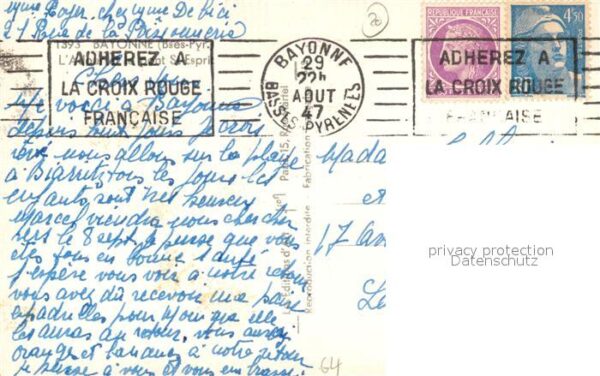 Mme Royer, chez Mme De bici
21 Rue de la Poissonnerie
1393 BAYONNE (Bses-Pyr.
L'A et St Esprit
ADHEREZ A
LA CROIX ROUGE
FRANÇAISE
BAYONNE
29
22h
AOUT
47
BASSES-PYRENEES
REPUBLIQUE FRANÇAISE
4f50
ADHEREZ A
LA CROIX ROUGE
FRANÇAISE
Me voici à Bayonne
depuis huit jours
nous allons sur la plage
à Biarritz tous les jours les
enfants sont très heureux
Marcel viendra nous chercher
vers le 8 sept. je pense que vous
êtes tous en bonne santé
j'espère vous voir à notre retour
vous avez dû recevoir une paire
espadrilles pour Mom
les auras au retour, vous aurez
oranges et bananes à notre retour
je pense à vous et vous embrasse
Paris 15, R.
Fabrication
Les Editions d'Art
Reproduction interdite
Mada
et
17
Le
64
20
privacy protection
Datenschutz